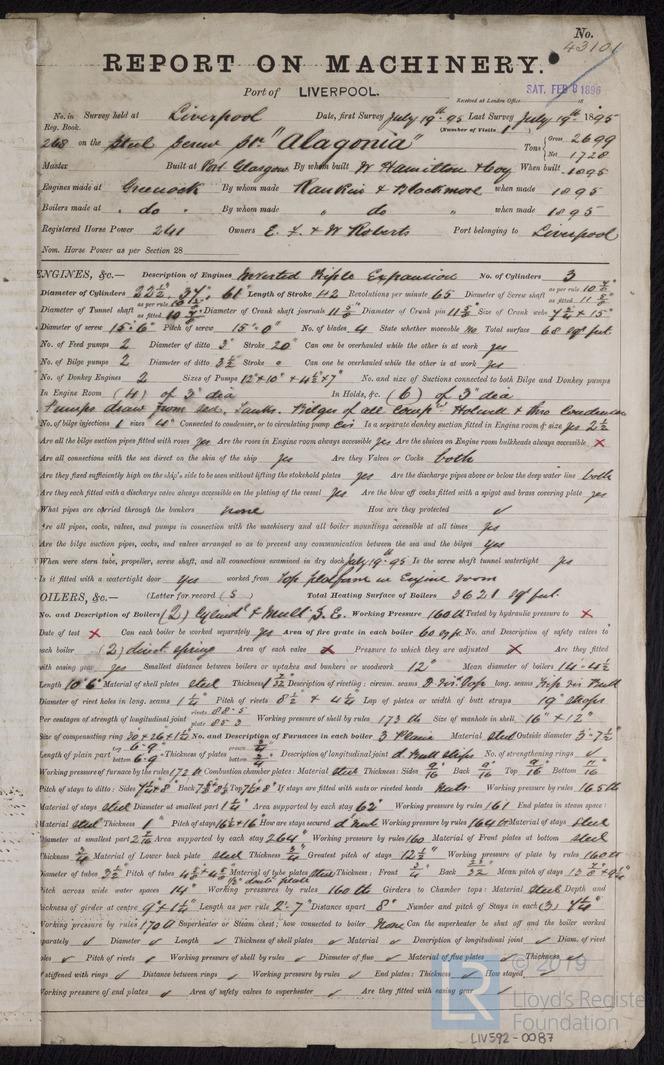 No.
43101
REPORT ON MACHINERY.
Port of LIVERPOOL.
Received at London Office
SAT. FEB 8 1896
No. in Survey held at Liverpool Date, first Survey July 19th 95 Last Survey July 19th 1895
Reg. Book. (Number of Visits 1)
268 on the Steel Screw Str. "Alagonia" Tons Gross 2699
Net 1728
Master Built at Port Glasgow By whom built W Hamilton & Coy When built 1895
Engines made at Greenock By whom made Rankin & Blackmore when made 1895
Boilers made at " do " By whom made " do " when made 1895
Registered Horse Power 241 Owners E. F. & W Roberts Port belonging to Liverpool
Nom. Horse Power as per Section 28
ENGINES, &c.— Description of Engines Inverted Triple Expansion No. of Cylinders 3
Diameter of Cylinders 22½" 37" 61" Length of Stroke 42 Revolutions per minute 65 Diameter of Screw shaft as per rule
as fitted
Diameter of Tunnel shaft as per rule as fitted Diameter of Crank shaft journals Diameter of Crank pin 11½" Size of Crank webs 7¾ + 15"
Diameter of screw 15'6" Pitch of screw 15'-0" No. of blades 4 State whether moveable No Total surface 68 sq. feet.
No. of Feed pumps 2 Diameter of ditto 3" Stroke 20" Can one be overhauled while the other is at work yes
No. of Bilge pumps 2 Diameter of ditto 3½" Stroke " Can one be overhauled while the other is at work yes
No. of Donkey Engines 2 Sizes of Pumps 12"+10" + 4½+7" No. and size of Suctions connected to both Bilge and Donkey pumps
In Engine Room (4) of 3" dia In Holds, &c. (6) of 3" dia
Pumps draw from sea, Tanks, Bilges of all Comp's Hotwell & thro Condenser
No. of bilge injections 1 sizes 4" Connected to condenser, or to circulating pump Cir Is a separate donkey suction fitted in Engine room & size yes 2½
Are all the bilge suction pipes fitted with roses yes Are the roses in Engine room always accessible yes Are the sluices on Engine room bulkheads always accessible ×
Are all connections with the sea direct on the skin of the ship yes Are they Valves or Cocks both
Are they fixed sufficiently high on the ship's side to be seen without lifting the stokehold plates yes Are the discharge pipes above or below the deep water line both
Are they each fitted with a discharge valve always accessible on the plating of the vessel yes Are the blow off cocks fitted with a spigot and brass covering plate yes
What pipes are carried through the bunkers none How are they protected ✓
Are all pipes, cocks, valves, and pumps in connection with the machinery and all boiler mountings accessible at all times yes
Are the bilge suction pipes, cocks, and valves arranged so as to prevent any communication between the sea and the bilges yes
When were stern tube, propeller, screw shaft, and all connections examined in dry dock July 19th 95 Is the screw shaft tunnel watertight yes
Is it fitted with a watertight door yes worked from Top platform in Engine room
OILERS, &c.— (Letter for record (S) Total Heating Surface of Boilers 3621 sq. feet.
No. and Description of Boilers (2) Cylind'l & Mult S.E. Working Pressure 160 lb Tested by hydraulic pressure to ×
Date of test × Can each boiler be worked separately yes Area of fire grate in each boiler 60 sq ft No. and Description of safety valves to
each boiler (2) direct spring Area of each valve × Pressure to which they are adjusted × Are they fitted
with easing gear yes Smallest distance between boilers or uptakes and bunkers or woodwork 12" Mean diameter of boilers 14'-4½
Length 10'6" Material of shell plates steel Thickness Description of riveting: circum. seams long. seams
Diameter of rivet holes in long. seams 1¼" Pitch of rivets 8½ + 4¼ Lap of plates or width of butt straps 19" straps
Per centages of strength of longitudinal joint rivets 88.5 plate 85.3 Working pressure of shell by rules 173 lb Size of manhole in shell 16" + 12"
Size of compensating ring 30+26+1¼" No. and Description of Furnaces in each boiler 3 Plain Material steel Outside diameter 3'-7½"
Length of plain part top 6'-9" bottom 6'-9" Thickness of plates crown ¾ bottom ¾ Description of longitudinal joint d. Butt strips No. of strengthening rings ✓
Working pressure of furnace by the rules 172 lb Combustion chamber plates: Material steel Thickness: Sides 9/16 Back 9/16 Top 9/16 Bottom 11/16
Pitch of stays to ditto: Sides Back Top If stays are fitted with nuts or riveted heads Nuts Working pressure by rules 165 lb
Material of stays steel Diameter at smallest part 1¼" Area supported by each stay 62" Working pressure by rules 161 End plates in steam space:
Material steel Thickness 1" Pitch of stays 16½+16" How are stays secured d. Nut Working pressure by rules 164 lb Material of stays steel
Diameter at smallest part Area supported by each stay 264" Working pressure by rules 160 Material of Front plates at bottom steel
Thickness ¾ Material of Lower back plate steel Thickness ¾ Greatest pitch of stays 12½" Working pressure of plate by rules 160 lb
Diameter of tubes 3½" Pitch of tubes Material of tube plates steel Thickness: Front ¾ Back Mean pitch of stays
Pitch across wide water spaces 14" Working pressures by rules 160 lb Girders to Chamber tops: Material steel Depth and
thickness of girder at centre 9"+1¼" Length as per rule 2'-7" Distance apart 8" Number and pitch of Stays in each (3) 7¼"
Working pressure by rules 170 lb Superheater or Steam chest; how connected to boiler None Can the superheater be shut off and the boiler worked
separately ✓ Diameter ✓ Length ✓ Thickness of shell plates ✓ Material ✓ Description of longitudinal joint ✓ Diam. of rivet
holes ✓ Pitch of rivets ✓ Working pressure of shell by rules ✓ Diameter of flue ✓ Material of flue plates ✓ Thickness ✓
If stiffened with rings ✓ Distance between rings ✓ Working pressure by rules ✓ End plates: Thickness ✓ How stayed ✓
Working pressure of end plates ✓ Area of safety valves to superheater ✓ Are they fitted with easing gear ✓
LR
© 2019
Lloyd's Register
Foundation
LIV592-0087